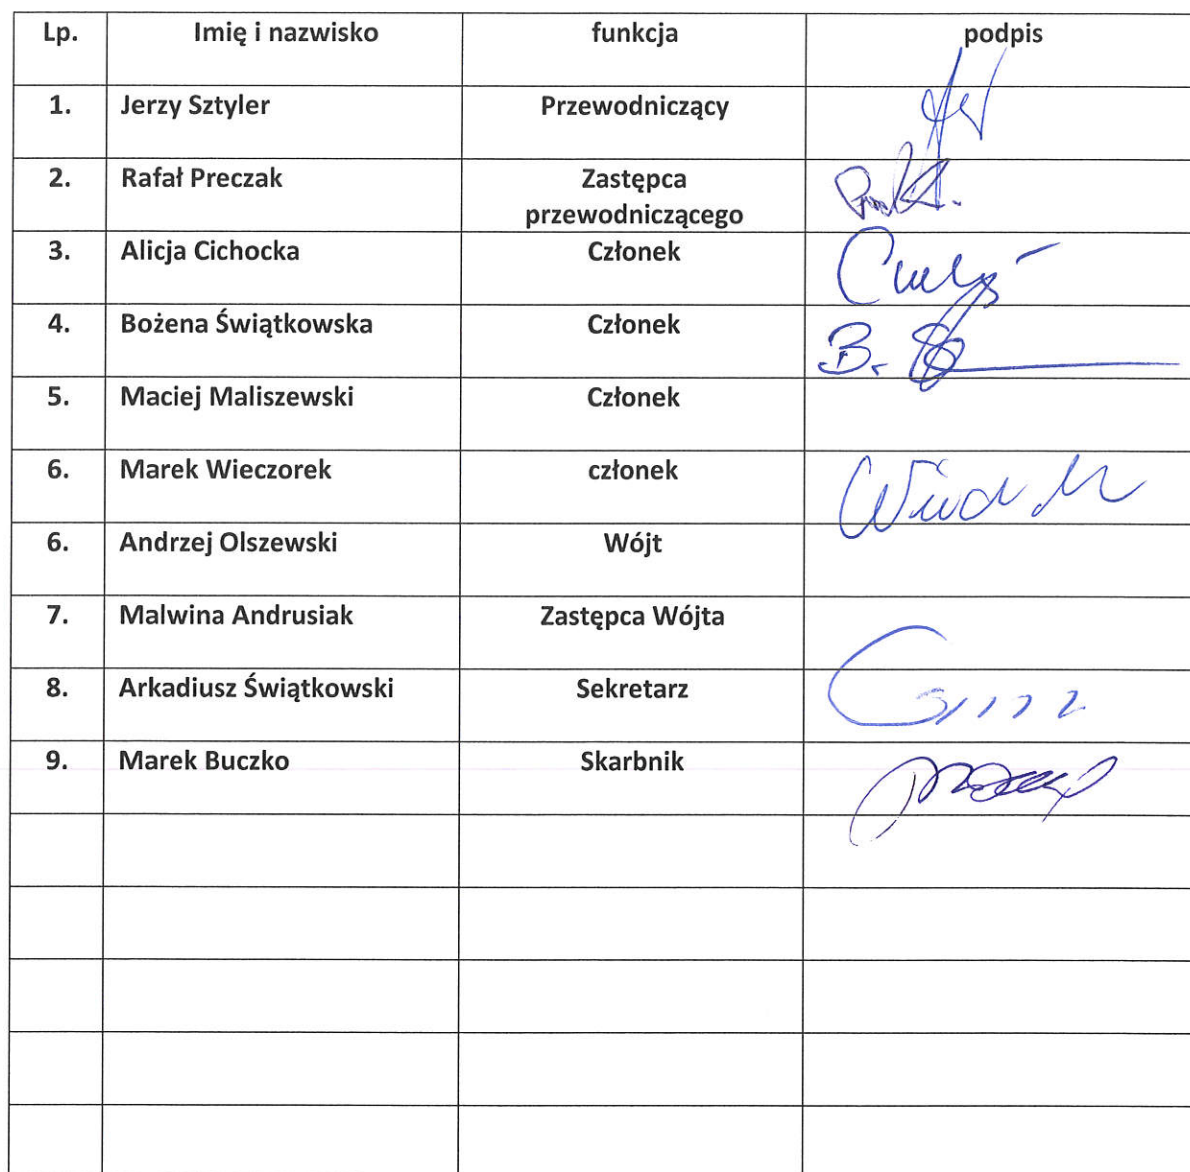 Lp. Imię i nazwisko funkcja podpis
1. Jerzy Sztyler Przewodniczący
2. Rafał Preczak Zastępca
przewodniczącego
3. Alicja Cichocka Członek
4. Bożena Świątkowska Członek
B.
5. Maciej Maliszewski Członek
6. Marek Wieczorek członek
6. Andrzej Olszewski Wójt
7. Malwina Andrusiak Zastępca Wójta
8. Arkadiusz Świątkowski Sekretarz
9. Marek Buczko Skarbnik